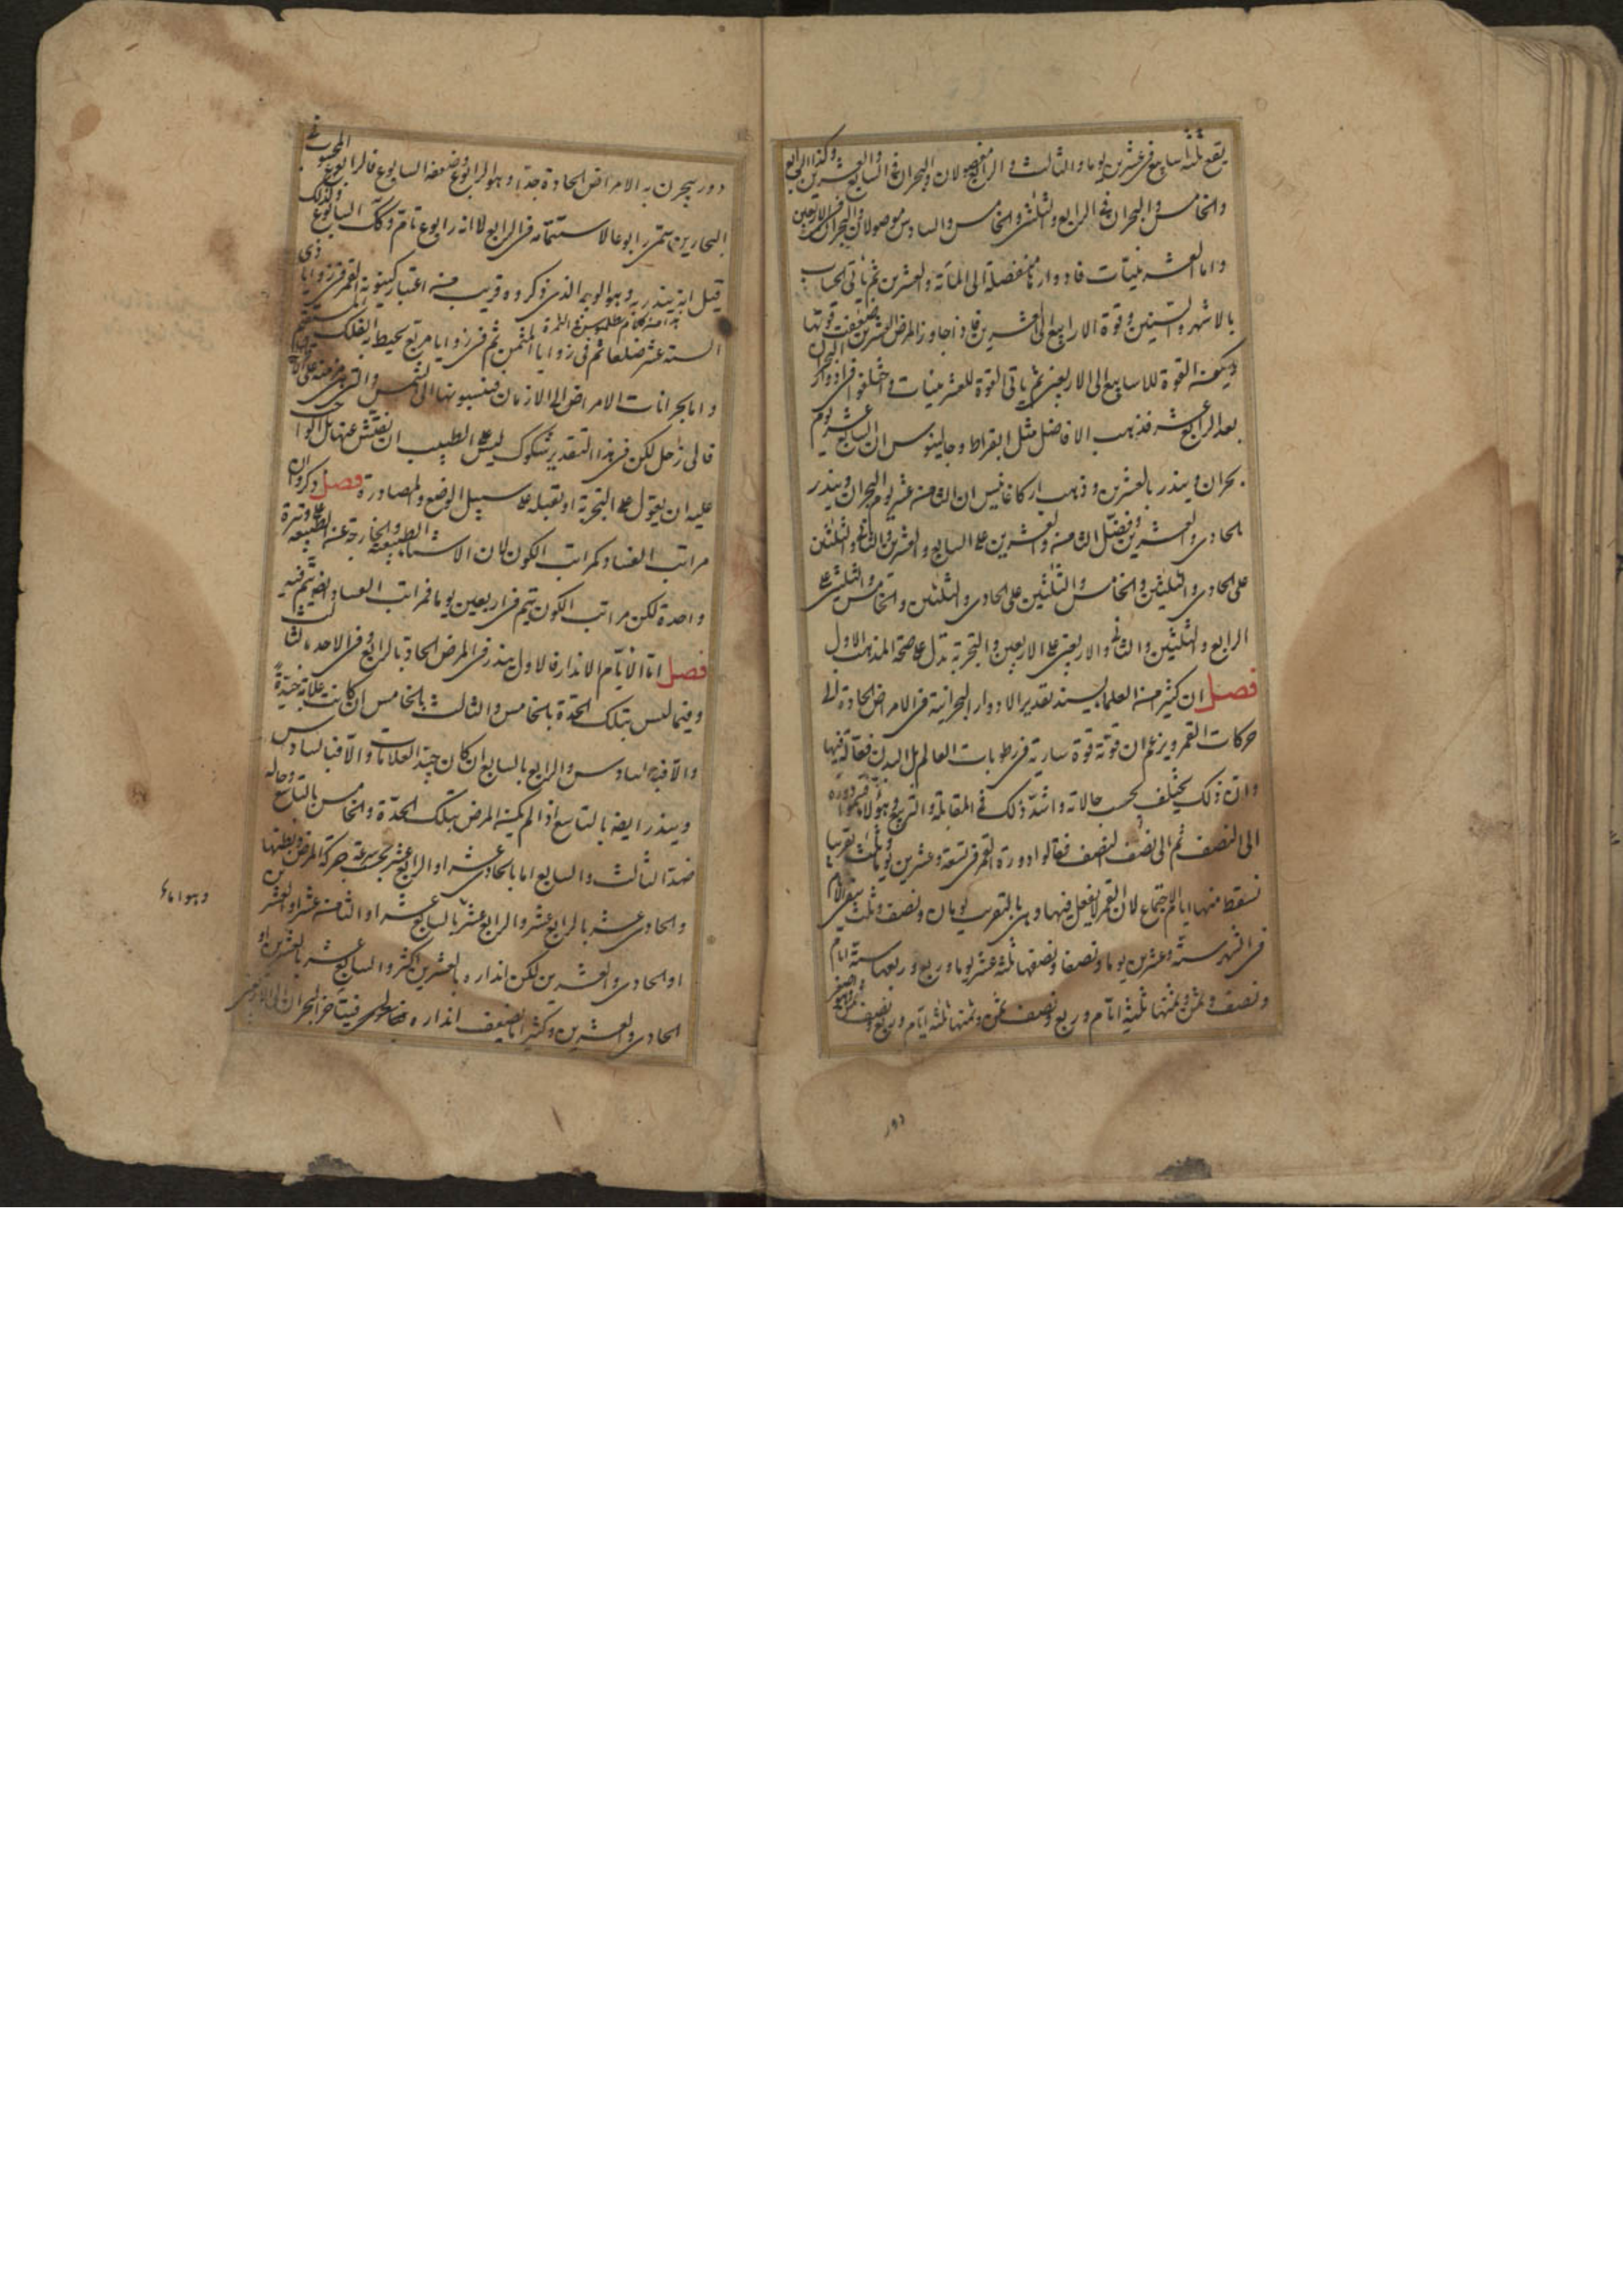 يقع ثلثة اسابيع فى عشرين يوما والثالث والرابع مفصولان والبحران فى السابع والعشرين وكذا الرابع
والخامس والبحران فى الرابع والثلثين والخامس والسادس موصولان والبحران فى الاربعين
واما العشرينيات فادوارها منفصلة الى المأة والعشرين ثم ياتى الحساب
بالاشهر والسنين وقوة الارابيع الى العشرين فاذا جاوز المرض العشرين ضعفت قوتها
ويكون القوة للاسابيع الى الاربعين ثم ياتى القوة للعشرينيات واختلفوا فى ادوار البحران
بعد الرابع عشر فذهب الافاضل مثل ابقراط وجالينوس ان السابع عشر يوم
بحران وينذر بالعشرين وذهب اركاغانيس ان الثامن عشر يوم البحران وينذر
بالحادى والعشرين ويفضل الثامن والعشرين على السابع والعشرين والثانى والثلثين
على الحادى والثلثين والخامس والثلثين على الحادى والثلثين والخامس والثلثين على
الرابع والثلثين والثانى والاربعين على الاربعين والتجربة تدل على صحة المذهب الاول
فصل ان كثير من العلماء يسند تقدير الادوار البحرانية فى الامراض الحادة الى
حركات القمر ويزعم ان قوته قوة سارية فى رطوبات العالم بل البدن فعالة فيها
وان ذلك يختلف بحسب حالاته واشد ذلك فى المقابلة والتربيع وهؤلاء قسموا دوره
الى النصف ثم الى نصف النصف فقالوا دورة القمر فى تسعة وعشرين يوما وثلث تقريبا
تسقط منها ايام الاجتماع لان القمر لا يفعل فيها وهى بالتقريب يومان ونصف وثلث يبقى الايام
فى الشهر ستة وعشرين يوما ونصفا ونصفها ثلثة عشر يوما وربع وربعها ستة ايام
ونصف وثمن وثمنها ثلثة ايام وربع ونصف ثمن وثمنها ثلثة ايام وربع ونصف ثمن وهو اصغر
دور
دور يبحرن به الامراض الحادة جدا وهو الرابوع وضعفه السابوع فالرابوع المحسوب فى
البحارين سمى رابوعا لاستتمامه فى الرابع لا انه رابوع تام وكك السابوع ولذلك
قيل انه ينذر به وهو الوجه الذى ذكروه قريب منه اعتبار كينونة القمر فى زوايا ذى
الستة عشر ضلعا ثم فى زوايا المثمن ثم فى زوايا مربع يحيط به الفلك
هذا من كلام بطلميوس فى الثمرة
واما بحرانات الامراض الى الازمان فينسبونها الى الشمس والتى
فالى زحل لكن فى هذا التقدير شكوك ليس على الطبيب ان يفتش عنها بل الواجب
عليه ان يقول على التجربة او تقبله على سبيل الوضع والمصادرة فصل وذكروا ان
مراتب الفساد كمراتب الكون لان الاسباب الطبيعية والخارجة عن الطبيعة على وتيرة
واحدة لكن مراتب الكون يتم فى اربعين يوما فمراتب الفساد ايضا يتم فيه
فصل اما الايام الانذار فالاول ينذر فى المرض الحاد بالرابع وفى الاحد بالثالث
وفيما ليس بتلك الحدة بالخامس والثالث بالخامس ان كانت علامة جيدة
والا فبالسادس والرابع بالسابع ان كان جيد العلامات والا فبالسادس
وينذر ايضا بالتاسع اذا لم يكن المرض بتلك الحدة والخامس بالتاسع وحاله
ضد الثالث والسابع اما بالحادى عشر او الرابع عشر بحسب سرعة حركة المرض وبطئها
والحادى عشر بالرابع عشر والرابع عشر بالسابع عشر او الثامن عشر او العشرين
او الحادى والعشرين لكن انذاره بالعشرين اكثر والسابع عشر بالعشرين او
الحادى والعشرين وكثيرا ما يضعف انذاره فيتاخر البحران الى الاربعين
وهو اما